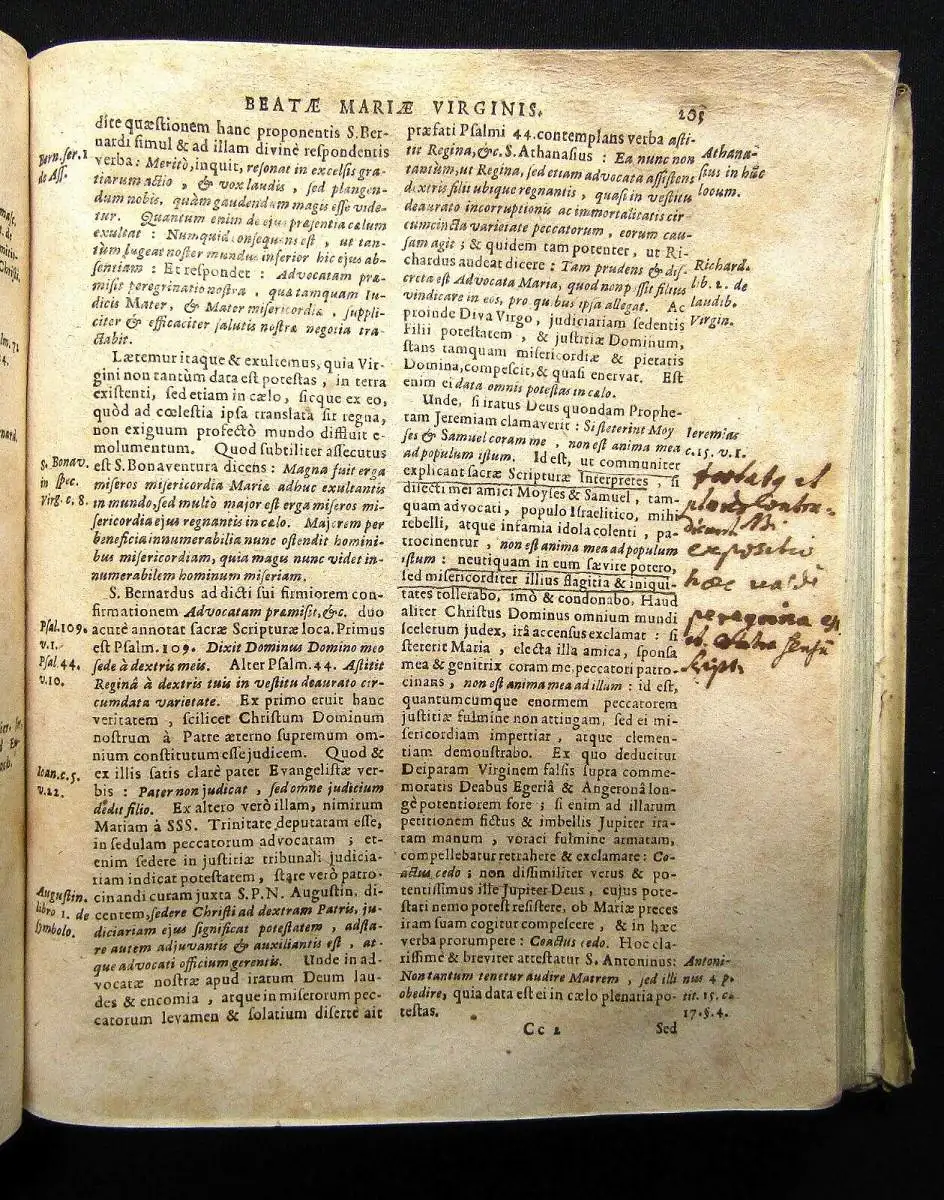 BEATÆ MARIÆ VIRGINIS.
205
dite quæstionem hanc proponentis S. Ber-
nardi simul & ad illam divinè respondentis
verba: Meritò, inquit, resonat in excelsis gra-
tiarum actio, & vox laudis, sed plangen-
dum nobis, quàm gaudendum magis esse vide-
tur. Quantum enim de ejus præsentia cælum
exultat: Numquid consequens est, ut tan-
tùm lugeat noster mundus inferior hic ejus ab-
sentiam: Et respondet: Advocatam præ-
misit peregrinatio nostra, quæ tamquam Iu-
dicis Mater, & Mater misericordiæ, suppli-
citer & efficaciter salutis nostræ negotia tra-
ctabit.
Lætemur itaque & exultemus, quia Vir-
gini non tantùm data est potestas, in terra
existenti, sed etiam in cælo, sicque ex eo,
quòd ad cœlestia ipsa translata sit regna,
non exiguum profectò mundo diffluit e-
molumentum. Quod subtiliter assecutus
est S. Bonaventura dicens: Magna fuit erga
miseros misericordia Mariæ adhuc exultantis
in mundo, sed multò major est erga miseros mi-
sericordia ejus regnantis in cælo. Majorem per
beneficia innumerabilia nunc ostendit homini-
bus misericordiam, quia magis nunc videt in-
numerabilem hominum miseriam.
S. Bernardus ad dicti sui firmiorem con-
firmationem Advocatam præmisit, &c. duo
acutè annotat sacræ Scripturæ loca. Primus
est Psalm. 109. Dixit Dominus Domino meo
sede à dextris meis. Alter Psalm. 44. Astitit
Reginâ à dextris tuis in vestitu deaurato cir-
cumdata varietate. Ex primo eruit hanc
veritatem, scilicet Christum Dominum
nostrum à Patre æterno supremum om-
nium constitutum esse judicem. Quod &
ex illis satis clarè patet Evangelistæ ver-
bis: Pater non judicat, sed omne judicium
dedit filio. Ex altero verò illam, nimirum
Mariam à SSS. Trinitate deputatam esse,
in sedulam peccatorum advocatam; et-
enim sedere in justitiæ tribunali judicia-
riam indicat potestatem, stare verò patro-
cinandi curam juxta S.P.N. Augustin. di-
centem, sedere Christi ad dextram Patris, ju-
diciariam ejus significat potestatem, adsta-
re autem adjuvantis & auxiliantis est, at-
que advocati officium gerentis. Unde in ad-
vocatæ nostræ apud iratum Deum lau-
des & encomia, atque in miserorum pec-
catorum levamen & solatium disertè ait
Bern. ser. 1
de Ass.
S. Bonav.
in spec.
Virg. c. 8.
Psal. 109.
v. 1.
Psal. 44.
v. 10.
Ioan. c. 5.
v. 22.
Augustin.
libro 1. de
symbolo.
præfati Psalmi 44. contemplans verba asti-
tit Regina, &c. S. Athanasius: Ea nunc non
tantùm, ut Regina, sed etiam advocata assistens
dextris filii ubique regnantis, quasi in vestitu
deaurato incorruptionis ac immortalitatis cir-
cumcincta varietate peccatorum, eorum cau-
sam agit; & quidem tam potenter, ut Ri-
chardus audeat dicere: Tam prudens & dis-
creta est Advocata Maria, quod non possit filius
vindicare in eos, pro quibus ipsa allegat. Ac
proinde Diva Virgo, judiciariam sedentis
Filii potestatem, & justitiæ Dominum,
stans tamquam misericordiæ & pietatis
Domina, compescit, & quasi enervat. Est
enim ei data omnis potestas in cælo.
Unde, si iratus Deus quondam Prophe-
tam Jeremiam clamaverit: Si steterint Moy
ses & Samuel coram me, non est anima mea
ad populum istum. Id est, ut communiter
explicant sacræ Scripturæ Interpretes, si
dilecti mei amici Moyses & Samuel, tam-
quam advocati, populo Israelitico, mihi
rebelli, atque infamia idola colenti, pa-
trocinentur, non est anima mea ad populum
istum: neutiquam in eum sævire potero,
sed misericorditer illius flagitia & iniqui-
tates tollerabo, imò & condonabo. Haud
aliter Christus Dominus omnium mundi
scelerum judex, irâ accensus exclamat: si
steterit Maria, electa illa amica, sponsa
mea & genitrix coram me, peccatori patro-
cinans, non est anima mea ad illum: id est,
quantumcumque enormem peccatorem
justitiæ fulmine non attingam, sed ei mi-
sericordiam impertiar, atque clemen-
tiam demonstrabo. Ex quo deducitur
Deiparam Virginem falsis supra comme-
moratis Deabus Egeriâ & Angeronâ lon-
gè potentiorem fore; si enim ad illarum
petitionem fictus & imbellis Jupiter ira-
tam manum, voraci fulmine armatam,
compellebatur retrahere & exclamare: Co-
actus cedo; non dissimiliter verus & po-
tentissimus ille Jupiter Deus, cujus pote-
stati nemo potest resistere, ob Mariæ preces
iram suam cogitur compescere, & in hæc
verba prorumpere: Coactus cedo. Hoc cla-
rissimè & breviter attestatur S. Antoninus:
Non tantum tenetur audire Matrem, sed illi
obedire, quia data est ei in cælo plenaria po-
testas.
Athana-
sius in hũc
locum.
Richard.
lib. 2. de
laudib.
Virgin.
Ieremias
c. 15. v. 1.
et
expositio
hæc
peregrina
Antoni-
nus 4 p.
tit. 15. c.
17. §. 4.
Cc 2
Sed